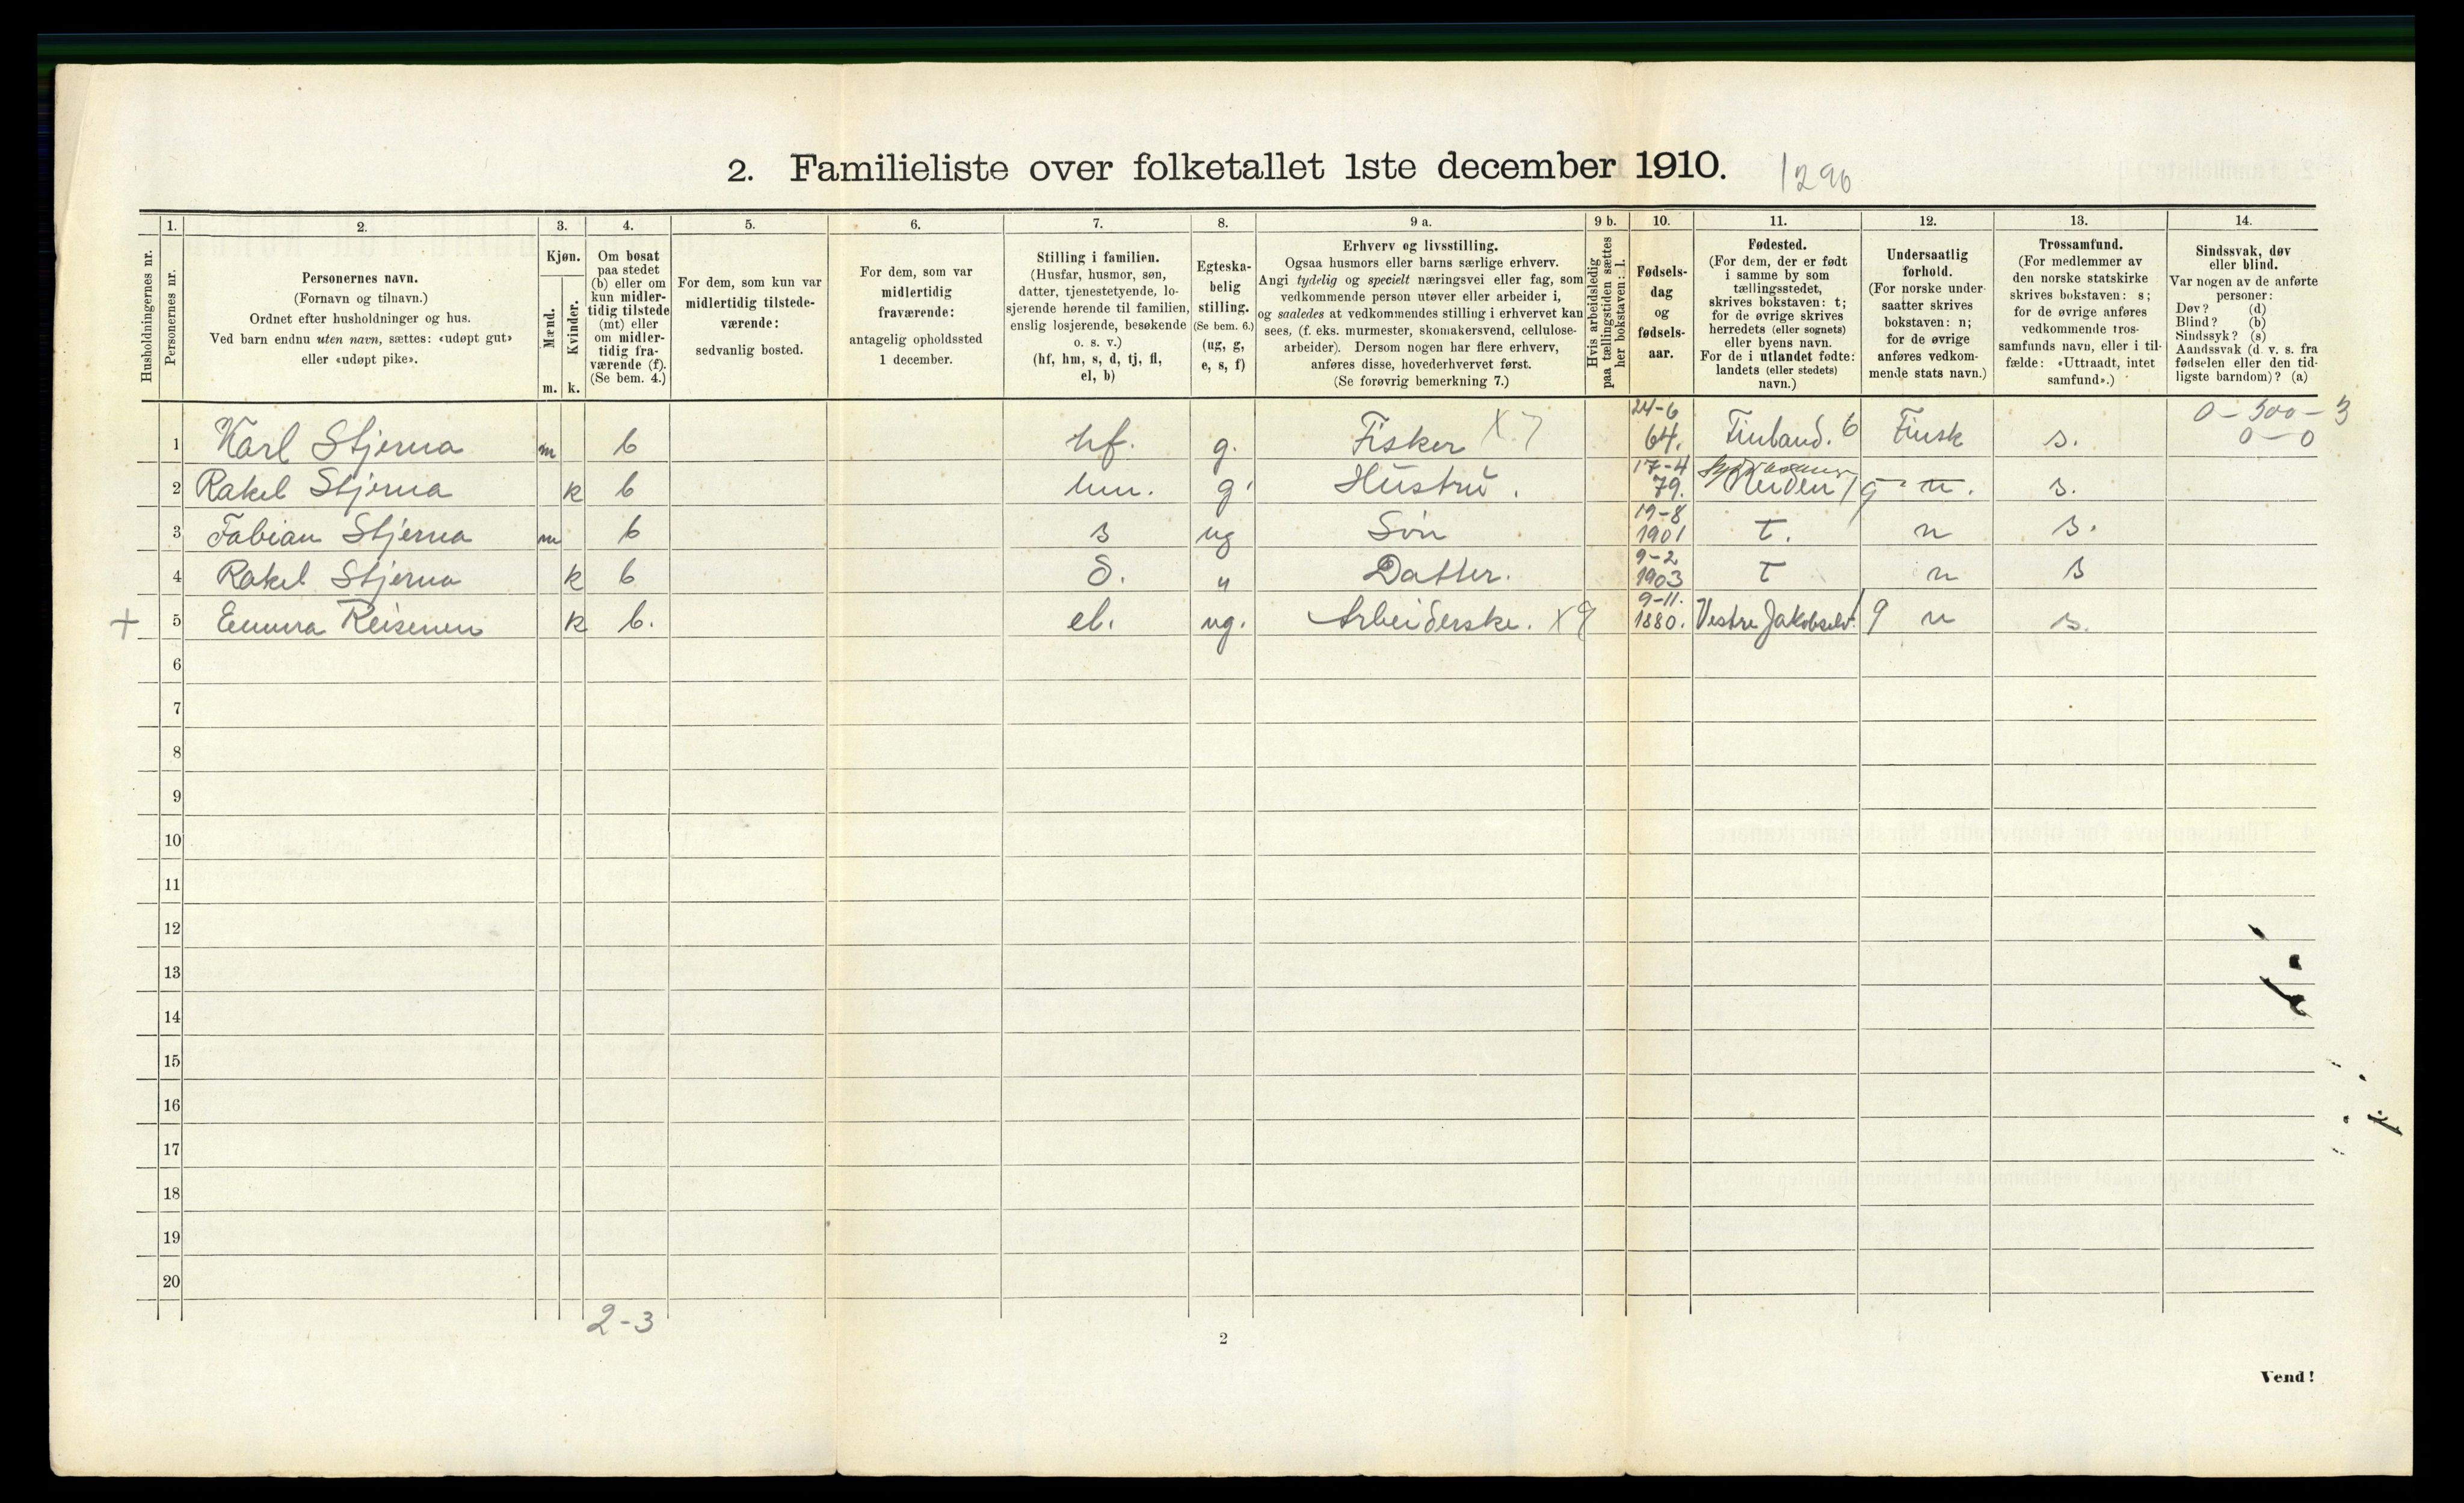 2. Familieliste over folketallet 1ste december 1910.
1290
Husholdningernes nr.
1.
Personernes nr.
2.
Personernes navn.
(Fornavn og tilnavn.)
Ordnet efter husholdninger og hus.
Ved barn endnu uten navn, sættes: «udøpt gut»
eller «udøpt pike».
3.
Kjøn.
Mænd.
Kvinder.
m. k.
4.
Om bosat
paa stedet
(b) eller om
kun midler-
tidig tilstede
(mt) eller
om midler-
tidig fra-
værende (f).
(Se bem. 4.)
5.
For dem, som kun var
midlertidig tilstede-
værende:
sedvanlig bosted.
6.
For dem, som var
midlertidig
fraværende:
antagelig opholdssted
1 december.
7.
Stilling i familien.
(Husfar, husmor, søn,
datter, tjenestetyende, lo-
sjerende hørende til familien,
enslig losjerende, besøkende
o. s. v.)
(hf, hm, s, d, tj, fl,
el, b)
8.
Egteska-
belig
stilling.
(Se bem. 6.)
(ug, g,
e, s, f)
9 a.
Erhverv og livsstilling.
Ogsaa husmors eller barns særlige erhverv.
Angi tydelig og specielt næringsvei eller fag, som
vedkommende person utøver eller arbeider i,
og saaledes at vedkommendes stilling i erhvervet kan
sees, (f. eks. murmester, skomakersvend, cellulose-
arbeider). Dersom nogen har flere erhverv,
anføres disse, hovederhvervet først.
(Se forøvrig bemerkning 7.)
9 b.
Hvis arbeidsledig
paa tællingstiden sættes
her bokstaven: l.
10.
Fødsels-
dag
og
fødsels-
aar.
11.
Fødested.
(For dem, der er født
i samme by som
tællingsstedet,
skrives bokstaven: t;
for de øvrige skrives
herredets (eller sognets)
eller byens navn.
For de i utlandet fødte:
landets (eller stedets)
navn.)
12.
Undersaatlig
forhold.
(For norske under-
saatter skrives
bokstaven: n;
for de øvrige
anføres vedkom-
mende stats navn.)
13.
Trossamfund.
(For medlemmer av
den norske statskirke
skrives bokstaven: s;
for de øvrige anføres
vedkommende tros-
samfunds navn, eller i til-
fælde: «Uttraadt, intet
samfund».)
14.
Sindssvak, døv
eller blind.
Var nogen av de anførte
personer:
Døv? (d)
Blind? (b)
Sindssyk? (s)
Aandssvak (d. v. s. fra
fødselen eller den tid-
ligste barndom)? (a)
24-6 0-300-3
1 Karl Stjerna m b hf. g. Fisker X 7 64. Finland. 6 Finsk s. 0-0
17-4
2 Rakel Stjerna k b hm. g. Hustru. 79. 9 n. s.
19-8
3 Fabian Stjerna m b s ug Søn 1901 t. n s.
9-2
4 Rakel Stjerna k b d. " Datter. 1903 t n s
9-11.
+ 5 Emma Reisenen k b. el. ug. Arbeiderske. X9 1880. Vestre Jakobselv. 9 n s.
6
7
8
9
10
11
12
13
14
15
16
17
18
19
20
2-3
2
Vend!